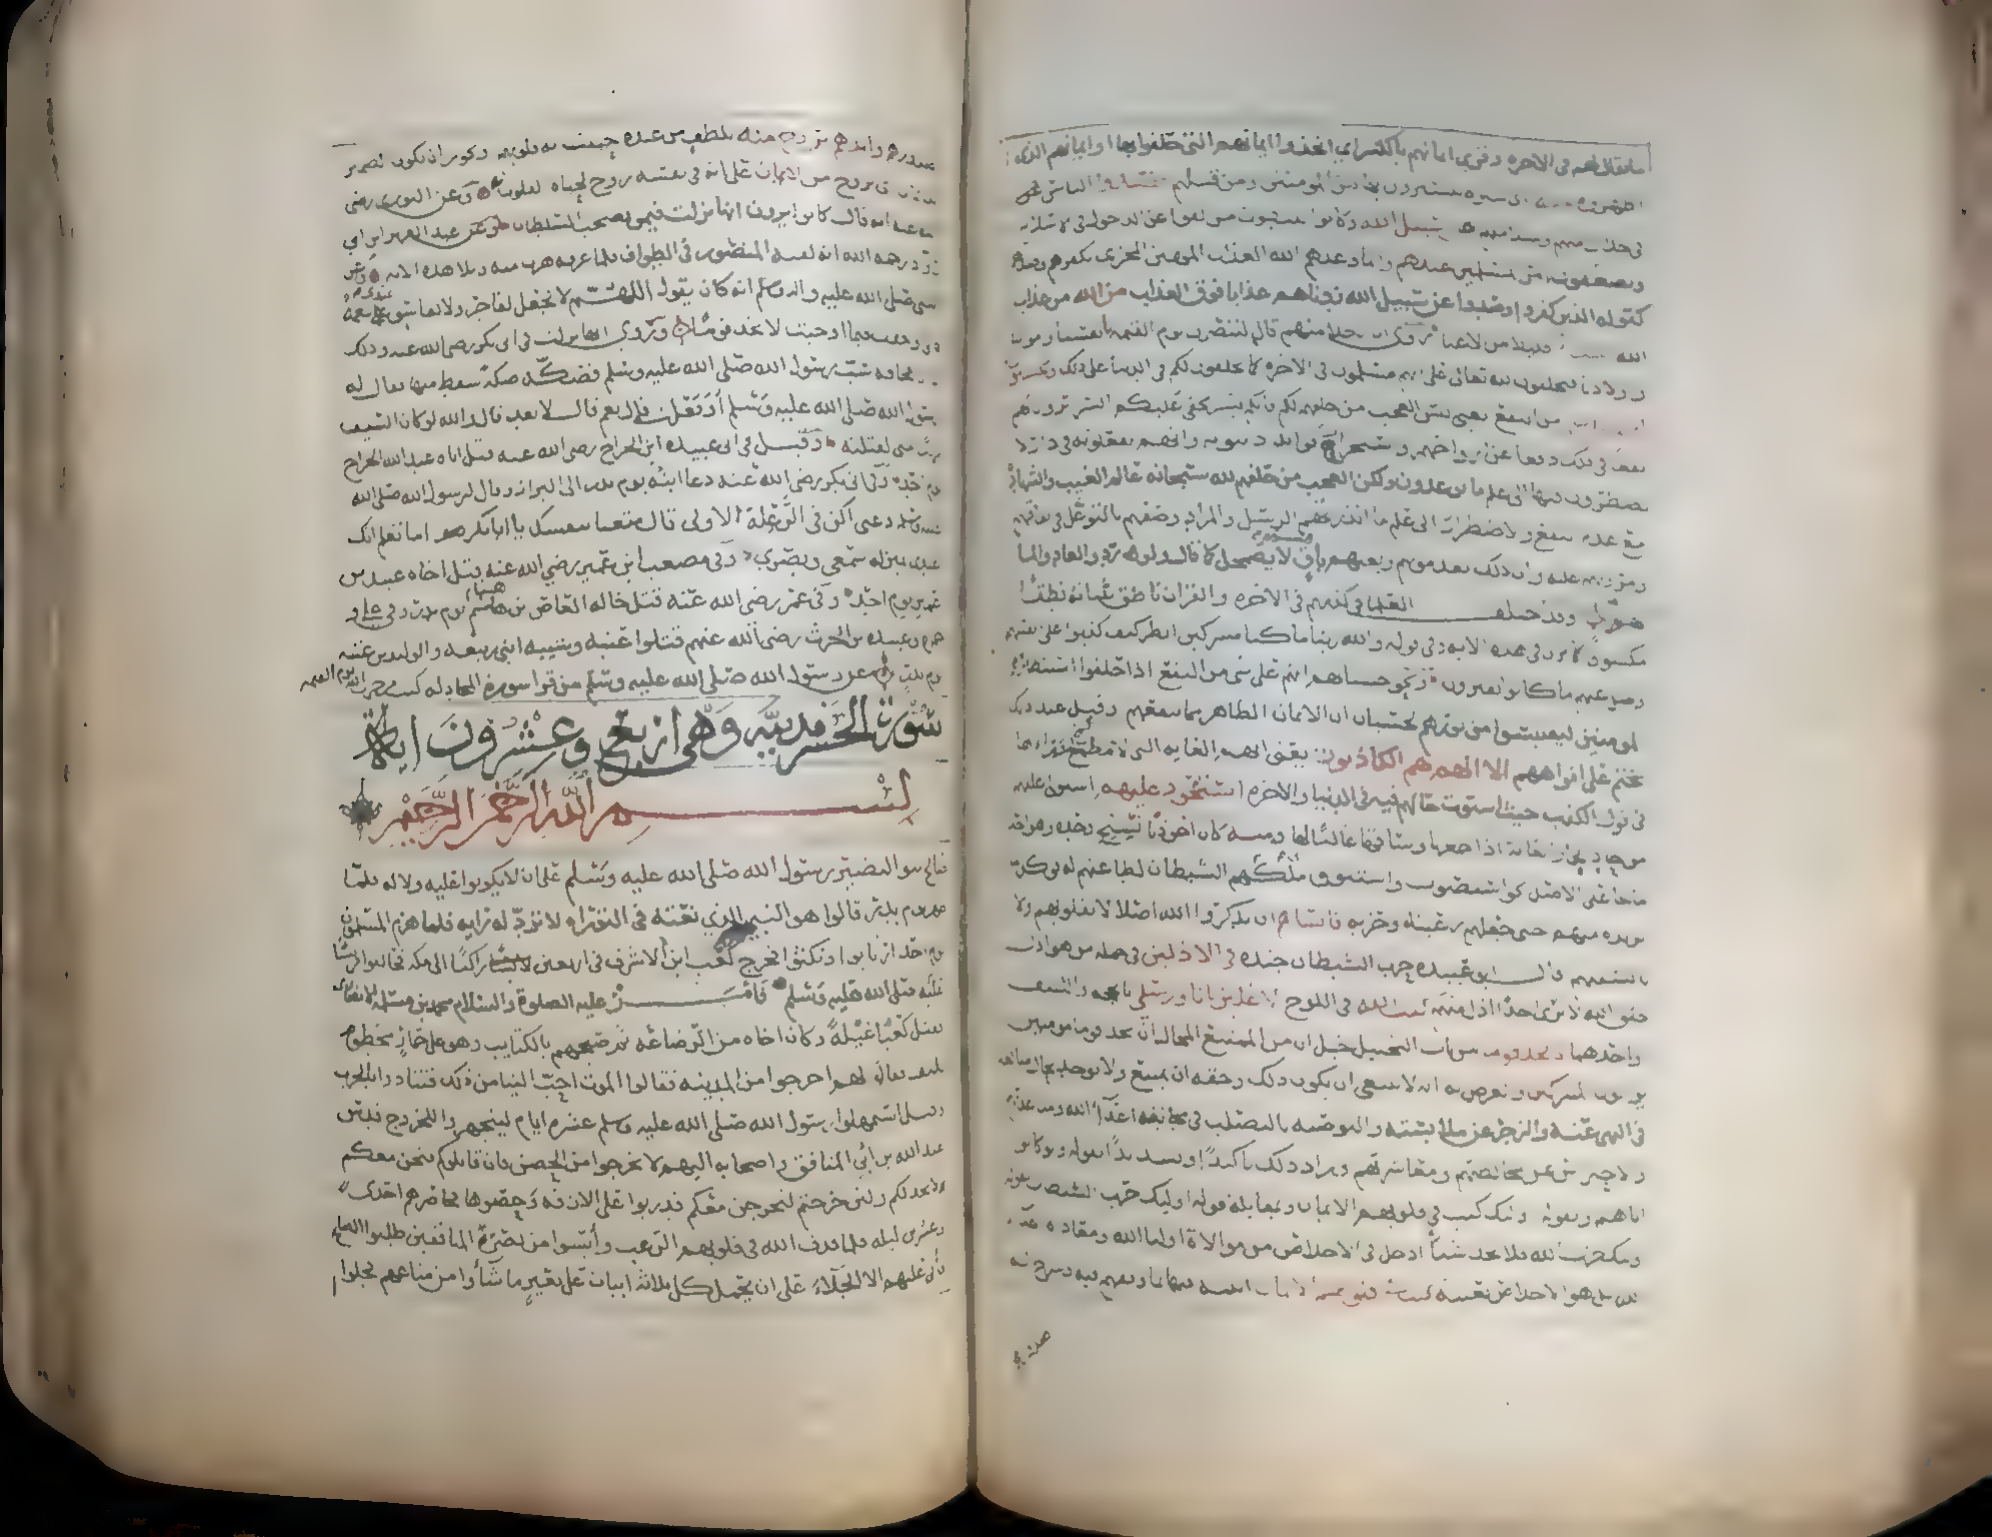 ما يقال لهم في الاخرة وقرى ايمانهم بالكسر اي اتخذوا ايمانهم التي حلفوا بها او ايمانهم الذي
عن سبيل الله وكانوا يثبطون من لقوا عن الدخول في الاسلام
ويضعفون امر المسلمين عندهم وانما وعدهم الله العذاب المهين المخزي لكفرهم وصدهم
كقوله الذين كفروا وصدوا عن سبيل الله زدناهم عذابا فوق العذاب من الله من عذاب
الله قليلا من الاغنا روي ان رجلا منهم قال لننصرن يوم القيمة بانفسنا واموالنا
واولادنا فيحلفون لله تعالى على انهم مسلمون في الاخرة كما يحلفون لكم في الدنيا على ذلك
يعني ليس العجب من حلفهم لكم فانكم بشر تخفى عليكم السرائر وان لهم
نفعا في ذلك دفعا عن ارواحهم واستجرار فوائد دنيوية وانهم يفعلونه في دار لا
يضطرون فيها الى علم ما يوعدون ولكن العجب من حلفهم لله سبحانه عالم الغيب والشهادة
مع عدم النفع والاضطرار الى علم ما انذرتهم الرسل والمراد وصفهم بالتوغل في نفاقهم
ومرونهم عليه وان ذلك بعد موتهم وبعثهم باق لا يضمحل كما قال ولو ردوا لعادوا لما
نهوا وقد اختلف العلما في كذبهم في الاخرة والقران ناطق بثباته نطقا
مكشوفا كما ترى في هذه الاية وفي قوله والله ربنا ما كنا مشركين انظر كيف كذبوا على انفسهم
وضل عنهم ما كانوا يفترون ونحو حسبانهم انهم على شي من النفع اذا حلفوا استنظارهم
المومنين ليقتبسوا من نورهم لحسبان ان الايمان الظاهر مما ينفعهم وقيل عند ذلك
يختم على افواههم الا انهم هم الكاذبون يعني انهم الغاية التي لا مطمح وراها
في قول الكذب حيث استوت حالهم فيه في الدنيا والاخرة استحوذ عليهم استولى عليهم
من حاذ الحمار العانة اذا جمعها وساقها غالبا لها ومنه كان احوذيا نسيج وحده وهو احد
ما جا على الاصل نحو استصوب واستنوق ملكهم الشيطان لطاعتهم له في كل ما
يريده منهم حتى جعلهم رعيته وحزبه فانساهم ان يذكروا الله اصلا لا بقلوبهم ولا
بالسنتهم قال ابو عبيدة حزب الشيطان جنده في الاذلين في جملة من هو اذل
خلق الله لا ترى احدا اذل منهم كتب الله في اللوح لاغلبن انا ورسلي بالحجة والسيف
او احدهما لا تجد قوما من باب التخييل خيل ان من الممتنع المحال ان تجد قوما مومنين
يوالون المشركين والغرض به انه لا ينبغي ان يكون ذلك وحقه ان يمتنع ولا يوجد بحال مبالغة
في النهي عنه والزجر عن ملابسته والتوصية بالتصلب في مجانبة اعدا الله ومباعدتهم
والاحتراس عن مخالطتهم ومعاشرتهم وزاد ذلك تاكيدا وتشديدا بقوله ولو كانوا
اباهم وبقوله اوليك كتب في قلوبهم الايمان وبمقابلة قوله اوليك حزب الشيطان بقوله
اوليك حزب الله فلا تجد شيأ ادخل في الاخلاص من موالاة اوليا الله ومعاداة اعدا
الله بل هو الاخلاص بعينه كتب في قلوبهم الايمان اثبته فيها بما وفقهم فيه وشرح له
صدورهم
صدورهم وايدهم بروح منه بلطف من عنده حييت به قلوبهم ويجوز ان يكون الضمير
للايمان اي بروح من الايمان على انه في نفسه روح لحياة القلوب به وعن الثوري رضي
الله عنه انه قال كانوا يرون انها نزلت فيمن يصحب السلطان وعن عبد العزيز ابن ابي
رواد رحمه الله انه لقيه المنصور في الطواف فلما عرفه هرب منه وتلا هذه الاية وعن
النبي صلى الله عليه واله وسلم انه كان يقول اللهم لا تجعل لفاجر ولا لفاسق عندي نعمة
فاني وجدت فيما اوحيت لا تجد قوما وروي انها نزلت في ابي بكر رضي الله عنه وذلك
ان ابا قحافة سب رسول الله صلى الله عليه وسلم فصكه صكة سقط منها فقال له
رسول الله صلى الله عليه وسلم اوفعلته قال نعم قال لا تعد قال والله لو كان السيف
قريبا مني لقتلته وقيل في ابي عبيدة ابن الجراح رضي الله عنه قتل اباه عبد الله الجراح
يوم احد وفي ابي بكر رضي الله عنه دعا ابنه يوم بدر الى البراز وقال لرسول الله صلى الله
عليه وسلم دعني اكن في الرعلة الاولى قال متعنا بنفسك يا ابا بكر اما تعلم انك
عندي بمنزلة سمعي وبصري وفي مصعب ابن عمير رضي الله عنه قتل اخاه عبيد بن
عمير يوم احد وفي عمر رضي الله عنه قتل خاله العاص بن هشام يوم بدر وفي علي و
حمزة وعبيدة بن الحرث رضي الله عنهم قتلوا عتبة وشيبة ابني ربيعة والوليد بن عتبة
يوم بدر عن رسول الله صلى الله عليه وسلم من قرا سورة المجادلة كتب من حزب الله يوم القيمة
سورة الحشر مدنية وهي اربع وعشرون اية
بسم الله الرحمن الرحيم
صالح بنو النضير رسول الله صلى الله عليه وسلم على ان لا يكونوا عليه ولا له فلما
ظهر يوم بدر قالوا هو النبي الذي نعته في التوراة لا ترد له راية فلما هزم المسلمون
يوم احد ارتابوا ونكثوا فخرج كعب ابن الاشرف في اربعين راكبا الى مكة فحالفوا قريشا
عليه صلى الله عليه وسلم فامر عليه الصلوة والسلام محمد بن مسلمة الانصاري
فقتل كعبا غيلة وكان اخاه من الرضاعة ثم صبحهم بالكتايب وهو على حمار مخطوم
بليف فقال لهم اخرجوا من المدينة فقالوا الموت احب الينا من ذلك فتنادوا بالحرب
وقيل استمهلوا رسول الله صلى الله عليه وسلم عشرة ايام ليتجهزوا للخروج فدس
عبد الله بن ابي المنافق واصحابه اليهم لا تخرجوا من الحصن فان قاتلوكم فنحن معكم
لا نخذلكم ولئن خرجتم لنخرجن معكم فدربوا على الازقة وحصنوها فحاصرهم احدى
وعشرين ليلة فلما قذف الله في قلوبهم الرعب وأيسوا من نصرة المنافقين طلبوا الصلح
فأبى عليهم الا الجلاء على ان يحمل كل ثلاثة ابيات على بعير ما شاوا من متاعهم فجلوا